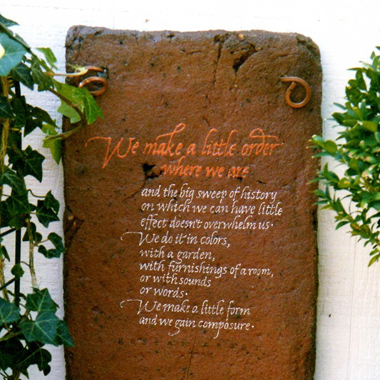 We make a little order
where we are
and the big sweep of history
on which we can have little
effect doesn't overwhelm us.
We do it in colors,
with a garden,
with furnishings of a room,
or with sounds
or words.
We make a little form
and we gain composure.